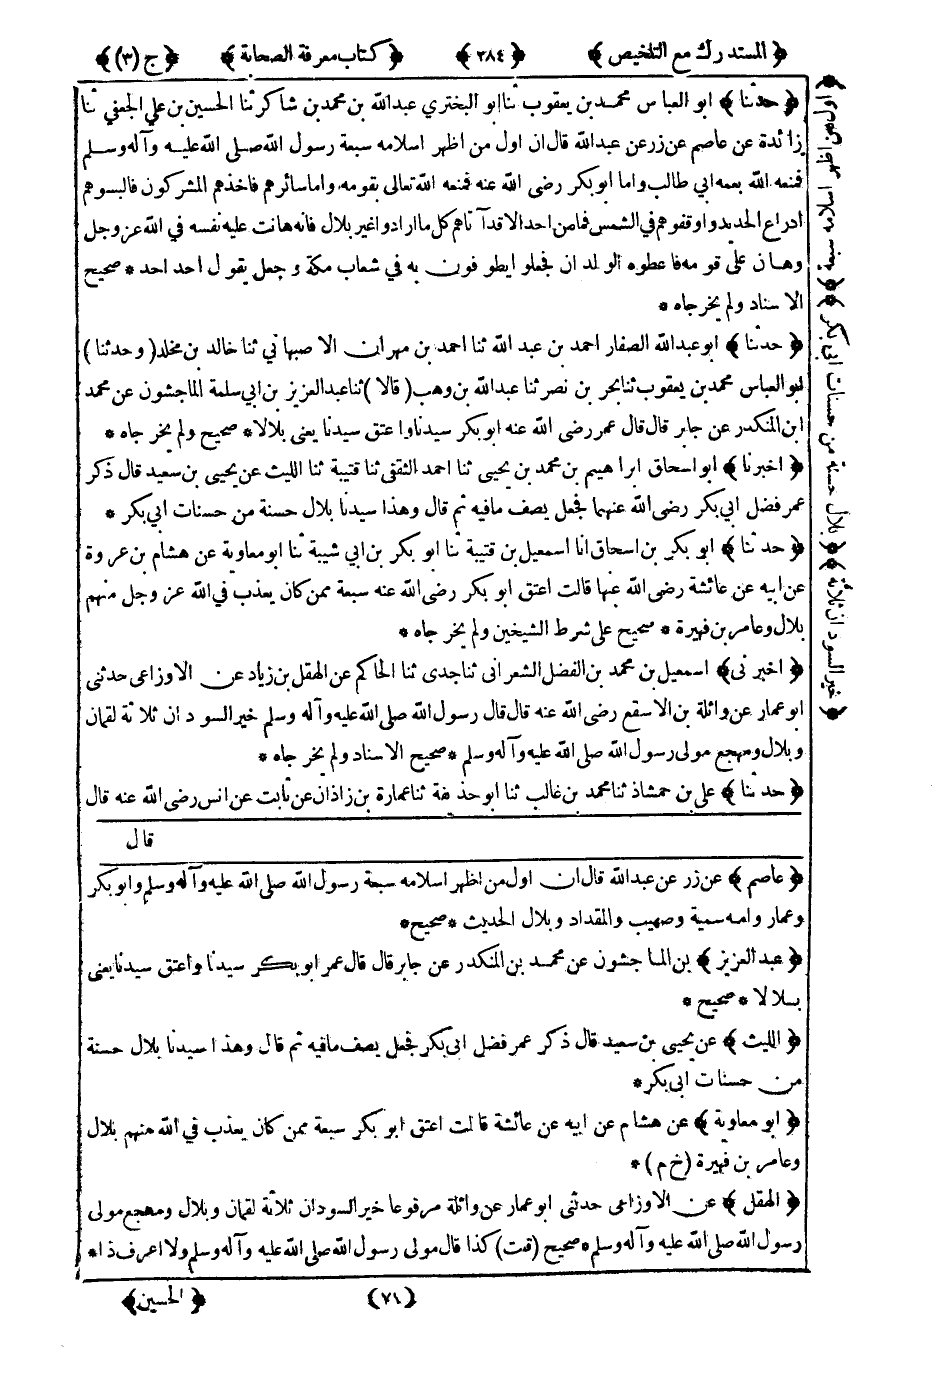 ﴿ المستدرك مع التلخيص ﴾ ﴿ ٢٨٤ ﴾ ﴿ كتاب معرفة الصحابة ﴾ ﴿ ج (٣) ﴾
﴿ حدثنا ﴾ ابو العباس محمد بن يعقوب ثنا ابو البختري عبدالله بن محمد بن شاكر ثنا الحسين بن علي الجعفي ثنا
زائدة عن عاصم عن زر عن عبدالله قال ان اول من اظهر اسلامه سبعة رسول الله صلى الله عليه وآله وسلم
فمنعه الله بعمه ابي طالب واما ابو بكر رضى الله عنه فمنعه الله تعالى بقومه واما سائرهم فاخذهم المشركون فالبسوهم
ادراع الحديد واوقفوهم في الشمس فما من احد الا قد آتاهم كل ما ارادوا غير بلال فانه هانت عليه نفسه في الله عز وجل
وهان على قومه فاعطوه الولدان فجعلوا يطوفون به في شعاب مكة وجعل يقول احد احد * صحيح
الاسناد ولم يخرجاه *
﴿ حدثنا ﴾ ابو عبدالله الصفار احمد بن عبد الله ثنا احمد بن مهران الاصبهاني ثنا خالد بن مخلد ( وحدثنا )
ابو العباس محمد بن يعقوب ثنا بحر بن نصر ثنا عبدالله بن وهب ( قالا ) ثنا عبدالعزيز بن ابي سلمة الماجشون عن محمد
ابن المنكدر عن جابر قال قال عمر رضى الله عنه ابو بكر سيدنا واعتق سيدنا يعنى بلالا * صحيح ولم يخرجاه *
﴿ اخبرنا ﴾ ابو اسحاق ابراهيم بن محمد بن يحيى ثنا احمد الثقفى ثنا قتيبة ثنا الليث عن يحيى بن سعيد قال ذكر
عمر فضل ابي بكر رضى الله عنهما فجعل يصف مافيه ثم قال وهذا سيدنا بلال حسنة من حسنات ابي بكر *
﴿ حدثنا ﴾ ابو بكر بن اسحاق انا اسمعيل بن قتيبة ثنا ابو بكر بن ابي شيبة ثنا ابو معاوية عن هشام بن عروة
عن ابيه عن عائشة رضى الله عنها قالت اعتق ابو بكر رضى الله عنه سبعة ممن كان يعذب في الله عز وجل منهم
بلال وعامر بن فهيرة * صحيح على شرط الشيخين ولم يخرجاه *
﴿ اخبرنى ﴾ اسمعيل بن محمد بن الفضل الشعرانى ثنا جدى ثنا الحاكم عن الهقل بن زياد عن الاوزاعى حدثنى
ابو عمار عن واثلة بن الاسقع رضى الله عنه قال قال رسول الله صلى الله عليه وآله وسلم خير السودان ثلاثة لقمان
وبلال ومهجع مولى رسول الله صلى الله عليه وآله وسلم * صحيح الاسناد ولم يخرجاه *
﴿ حدثنا ﴾ على بن حمشاذ ثنا محمد بن غالب ثنا ابو حذيفة ثنا عمارة بن زاذان عن ثابت عن انس رضى الله عنه قال
قال
﴿ عاصم ﴾ عن زر عن عبدالله قال ان اول من اظهر اسلامه سبعة رسول الله صلى الله عليه وآله وسلم وابو بكر
وعمار وامه سمية وصهيب والمقداد وبلال الحديث * صحيح *
﴿ عبد العزيز ﴾ بن الماجشون عن محمد بن المنكدر عن جابر قال قال عمر ابو بكر سيدنا واعتق سيدنا يعنى
بلالا * صحيح *
﴿ الليث ﴾ عن يحيى بن سعيد قال ذكر عمر فضل ابى بكر فجعل يصف مافيه ثم قال وهذا سيدنا بلال حسنة
من حسنات ابى بكر *
﴿ ابو معاوية ﴾ عن هشام عن ابيه عن عائشة قالت اعتق ابو بكر سبعة ممن كان يعذب في الله منهم بلال
وعامر بن فهيرة (خ م) *
﴿ الهقل ﴾ عن الاوزاعى حدثنى ابو عمار عن واثلة مرفوعا خير السودان ثلاثة لقمان وبلال ومهجع مولى
رسول الله صلى الله عليه وآله وسلم * صحيح (قت) كذا قال مولى رسول الله صلى الله عليه وآله وسلم ولا اعرف ذا *
﴿ بلال حسنة من حسنات ابى بكر ﴾
﴿ خير السودان ثلاثة ﴾
﴿ ٧١ ﴾ ﴿ الحسين ﴾